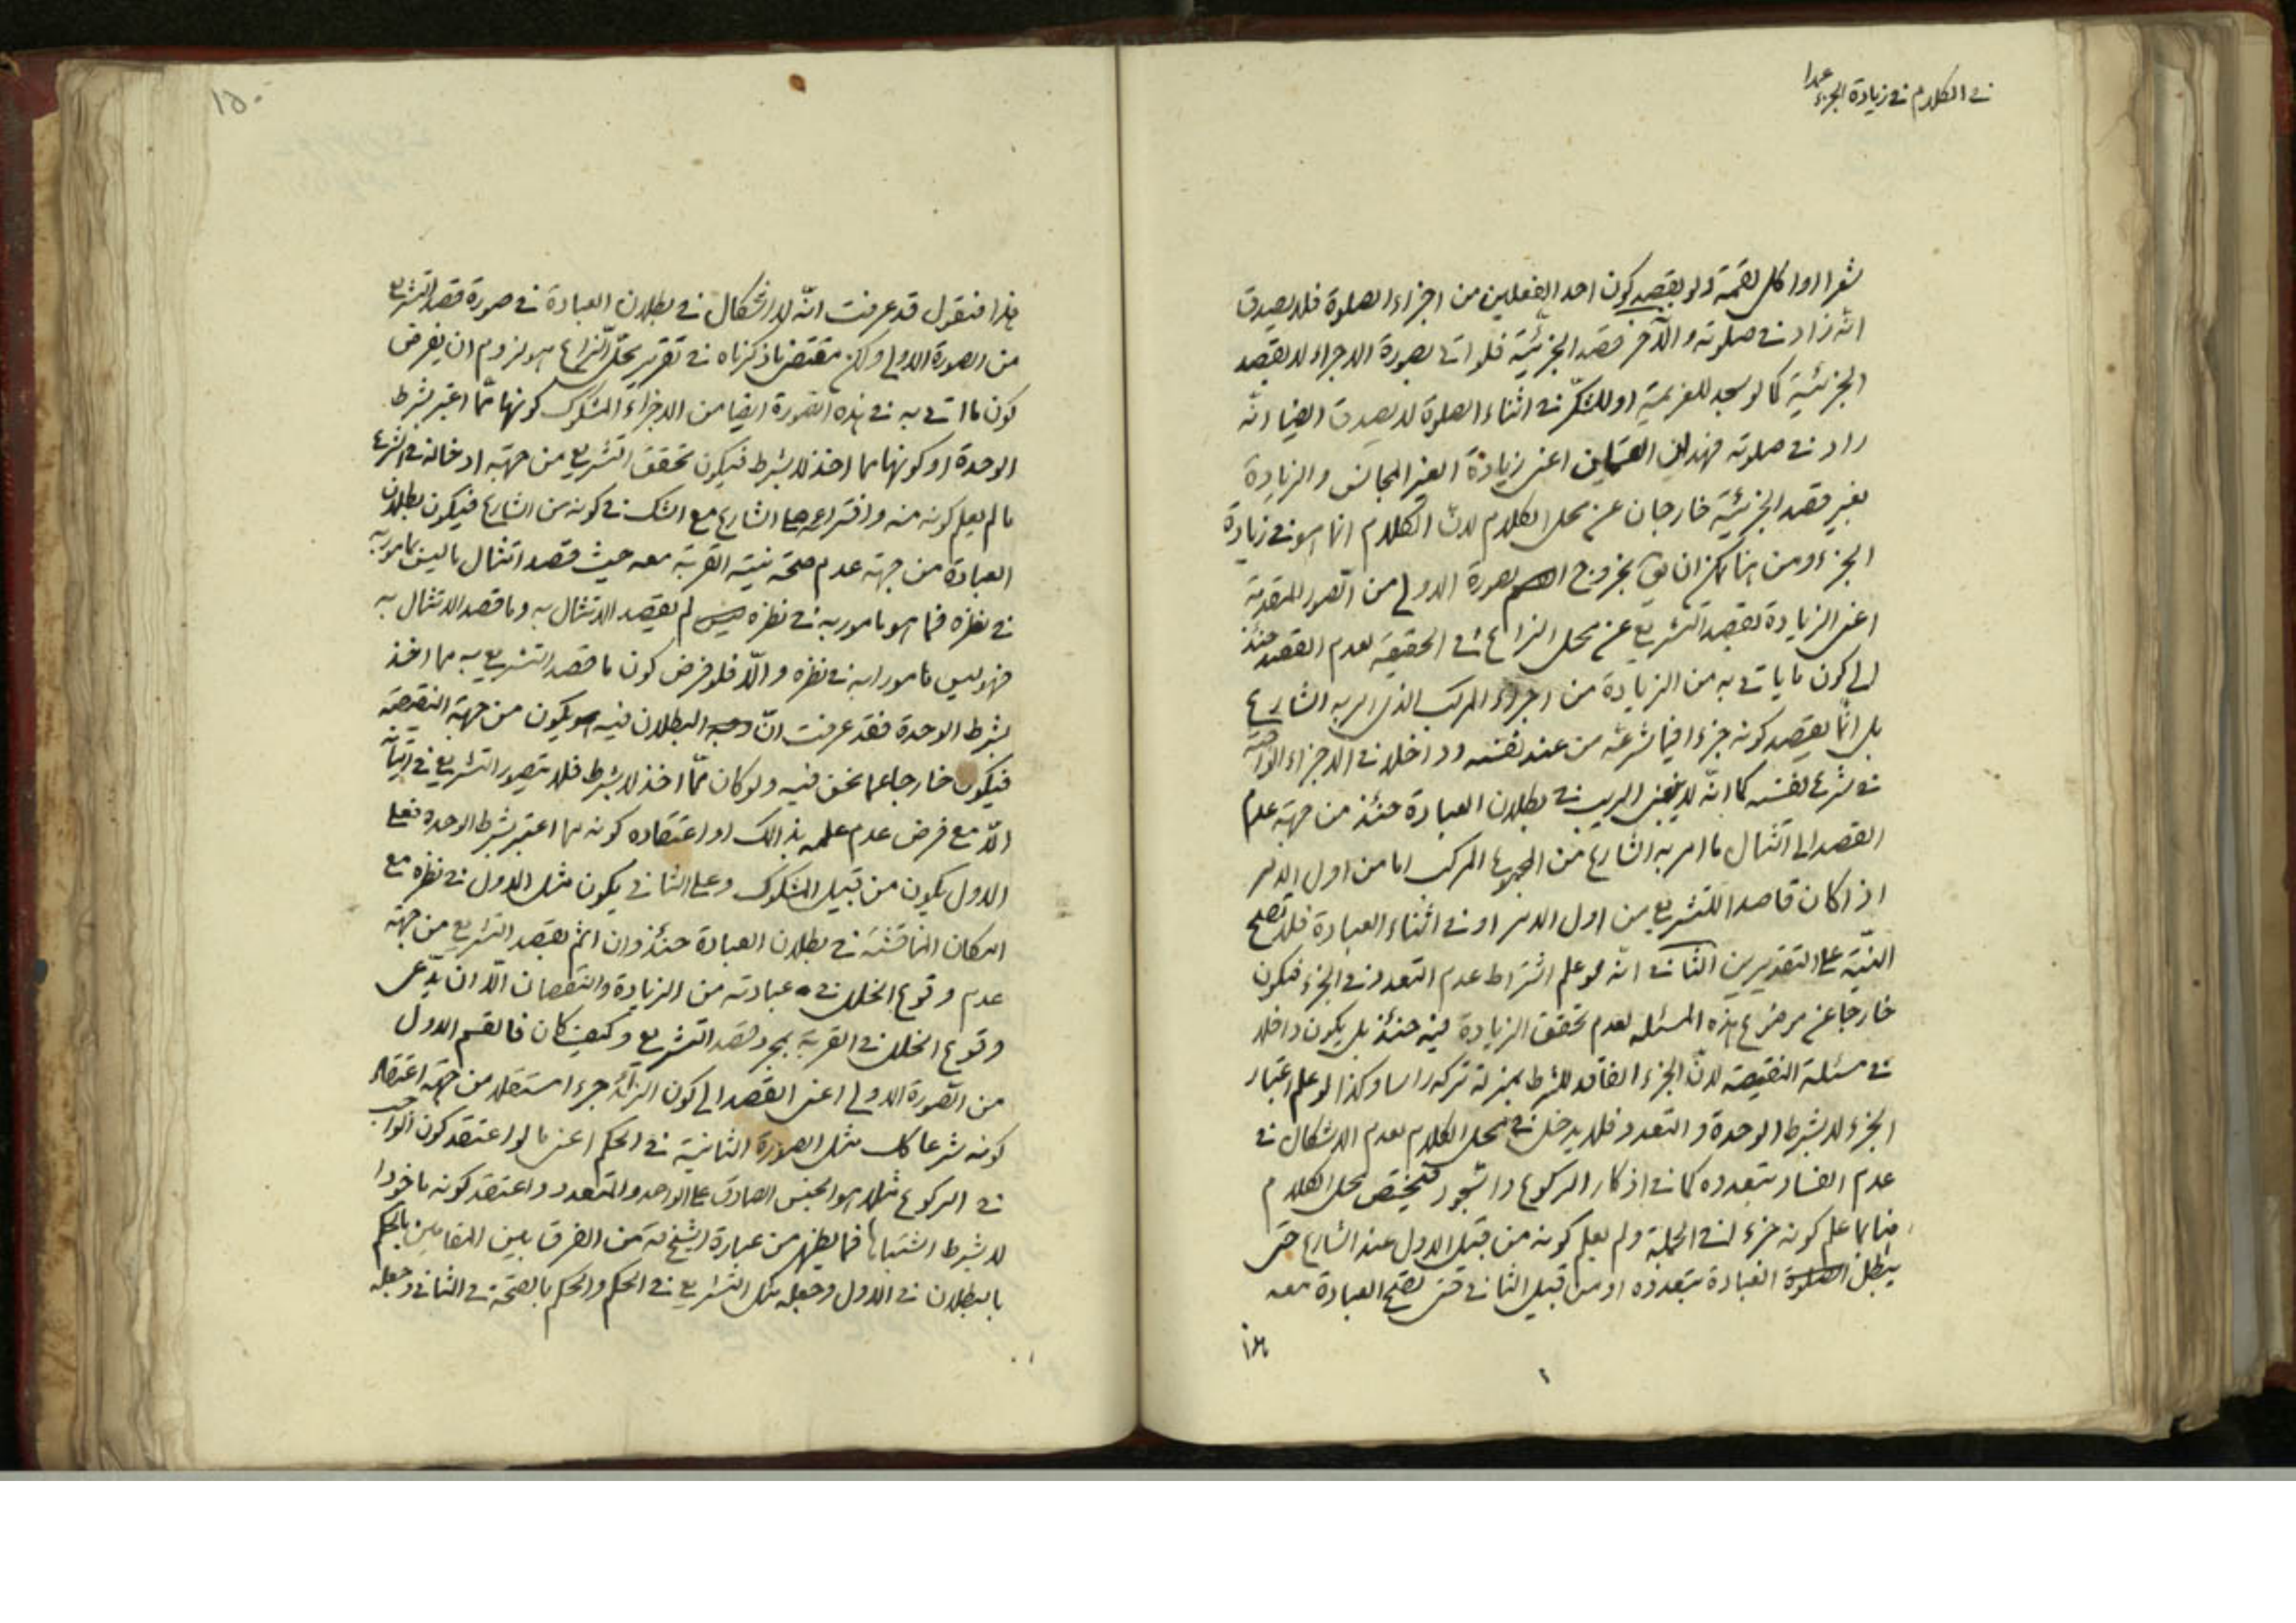 في الكلام في زيادة الجزء عمدا
شعرا او اكل لقمة ولو بقصد كون احد الفعلين من اجزاء الصلوة فلا يصدق
انه زاد في صلوته والآخر قصد الجزئية فلو اتى بصورة الاجزاء لا بقصد
الجزئية كما لو سجد للعزيمة او للشكر في اثناء الصلوة لا يصدق ايضا انه
زاد في صلوته فهذان القسمان اعنى زيادة الغير المجانس والزيادة
بغير قصد الجزئية خارجان عن محل الكلام لانّ الكلام انما هو في زيادة
الجزء ومن هنا يمكن ان يق بخروج الصورة الاولى من الصور المتقدمة
اعنى الزيادة بقصد التشريع عن محل النزاع في الحقيقة لعدم القصد حينئذ
الى كون ما ياتى به من الزيادة من اجزاء المركب الذى امر به الشارع
بل انّما يقصد كونه جزءا فيما شرعه من عند نفسه وداخلا في الاجزاء الواجبة
في شرع نفسه كما انّه لا ينبغى الريب في بطلان العبادة حينئذ من جهة عدم
القصد الى امتثال ما امر به الشارع من المركب اما من اول الامر
اذا كان قاصدا للتشريع من اول الامر او في اثناء العبادة فلا تصح
النيّة على التقديرين الثانى انّه لو علم اشتراط عدم التعدد في الجزء فيكون
خارجا عن موضوع هذه المسئلة لعدم تحقق الزيادة فيه حينئذ بل يكون داخلا
في مسئلة النقيصة لانّ الجزء الفاقد للشرط بمنزلة تركه راسا وكذا لو علم اعتبار
الجزء لا بشرط الوحدة والتعدد فلا يدخل في محل الكلام لعدم الاشكال في
عدم الفساد بتعدده كما في اذكار الركوع والسّجود فيختص محل الكلام
فيما علم كونه جزء في الجملة ولم يعلم كونه من قبيل الاول عند الشارع حتى
يبطل العبادة بتعدده او من قبيل الثانى حتى تصح العبادة معه
١٥٠
هذا فنقول قد عرفت انّه لا اشكال في بطلان العبادة في صورة قصد التشريع
من الصورة الاولى ولكن مقتضى ما ذكرناه في تقرير محل النزاع هو لزوم ان يفرض
كون ما اتى به في هذه الصورة ايضا من الاجزاء المشكوك كونها ممّا اعتبر بشرط
الوحدة او كونها مما اخذ لا بشرط فيكون تحقق التشريع من جهة ادخاله في الشرع
ما لم يعلم كونه منه وافترائه على الشارع مع الشك في كونه من الشارع فيكون بطلان
العبادة من جهة عدم صحة نيّة القربة معه حيث قصد امتثال ما ليس مامورا به
في نظره فما هو مامور به في نظره لم يقصد الامتثال به وما قصد الامتثال به
فهو ليس مامورا به في نظره والّا فلو فرض كون ما قصد التشريع به مما اخذ
بشرط الوحدة فقد عرفت انّ وجه البطلان فيه يكون من جهة النقيصة
فيكون خارجا عما نحن فيه ولو كان ممّا اخذ لا بشرط فلا يتصور التشريع في اتيانه
الّا مع فرض عدم علمه بذالك او اعتقاده كونه مما اعتبر بشرط الوحدة فعلى
الاول يكون من قبيل المشكوك وعلى الثانى يكون مثل الاول في نظره مع
امكان المناقشة في بطلان العبادة حينئذ وان اثم بقصد التشريع من جهة
عدم وقوع الخلل في عبادته من الزيادة والنقصان الّا ان يدّعى
وقوع الخلل في القربة بمجرد قصد التشريع وكيف كان فالقسم الاول
من الصّورة الاولى اعنى القصد الى كون الزائد جزءا مستقلا من جهة اعتقاد
كونه شرعا كك مثل الصورة الثانية في الحكم اعنى ما لو اعتقد كون الواجب
في الركوع مثلا هو الجنس الصادق على الواحد والمتعدد واعتقد كونه ماخوذا
لا بشرط اشتباها فما يظهر من عبارة الشيخ ره من الفرق بين المقامين بالحكم
بالبطلان في الاول وجعله مثل التشريع في الحكم والحكم بالصحّة في الثانى وجعله